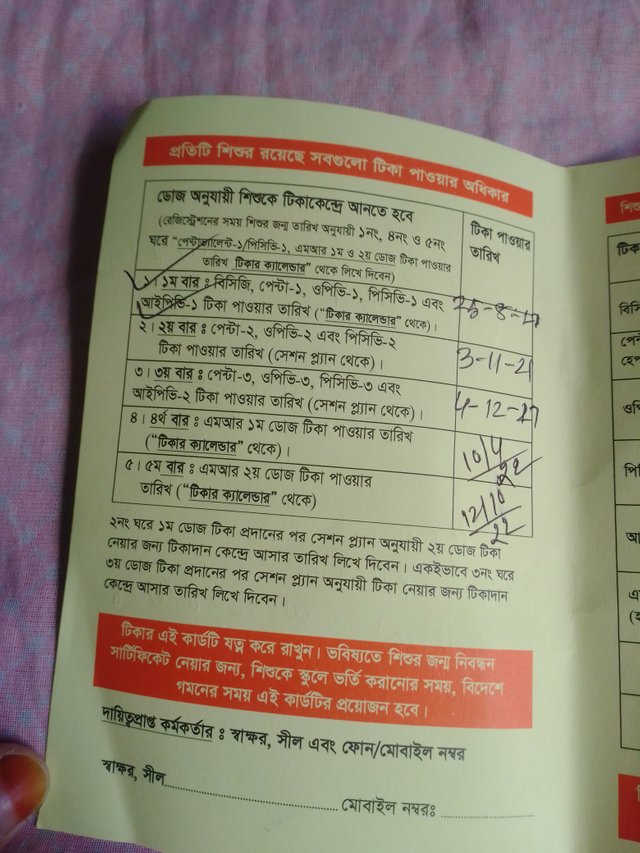 প্রতিটি শিশুর রয়েছে সবগুলো টিকা পাওয়ার অধিকার
ডোজ অনুযায়ী শিশুকে টিকাকেন্দ্রে আনতে হবে
(রেজিস্ট্রেশনের সময় শিশুর জন্ম তারিখ অনুযায়ী ১নং, ৪নং ও ৫নং
ঘরে "পেন্টাভ্যালেন্ট-১/পিসিভি-১, এমআর ১ম ও ২য় ডোজ টিকা পাওয়ার
তারিখ টিকার ক্যালেন্ডার" থেকে লিখে দিবেন)
টিকা পাওয়ার
তারিখ
১। ১ম বার : বিসিজি, পেন্টা-১, ওপিভি-১, পিসিভি-১ এবং
আইপিভি-১ টিকা পাওয়ার তারিখ ("টিকার ক্যালেন্ডার" থেকে)।
25-8-
২। ২য় বার : পেন্টা-২, ওপিভি-২ এবং পিসিভি-২
টিকা পাওয়ার তারিখ (সেশন প্ল্যান থেকে)।
3-11-21
৩। ৩য় বার : পেন্টা-৩, ওপিভি-৩, পিসিভি-৩ এবং
আইপিভি-২ টিকা পাওয়ার তারিখ (সেশন প্ল্যান থেকে)।
4-12-21
৪। ৪র্থ বার : এমআর ১ম ডোজ টিকা পাওয়ার তারিখ
("টিকার ক্যালেন্ডার" থেকে)।
10/4
22
৫। ৫ম বার : এমআর ২য় ডোজ টিকা পাওয়ার
তারিখ ("টিকার ক্যালেন্ডার" থেকে)
12/10
22
২নং ঘরে ১ম ডোজ টিকা প্রদানের পর সেশন প্ল্যান অনুযায়ী ২য় ডোজ টিকা
নেয়ার জন্য টিকাদান কেন্দ্রে আসার তারিখ লিখে দিবেন। একইভাবে ৩নং ঘরে
৩য় ডোজ টিকা প্রদানের পর সেশন প্ল্যান অনুযায়ী টিকা নেয়ার জন্য টিকাদান
কেন্দ্রে আসার তারিখ লিখে দিবেন।
টিকার এই কার্ডটি যত্ন করে রাখুন। ভবিষ্যতে শিশুর জন্ম নিবন্ধন
সার্টিফিকেট নেয়ার জন্য, শিশুকে স্কুলে ভর্তি করানোর সময়, বিদেশে
গমনের সময় এই কার্ডটির প্রয়োজন হবে।
দায়িত্বপ্রাপ্ত কর্মকর্তার : স্বাক্ষর, সীল এবং ফোন/মোবাইল নম্বর
স্বাক্ষর, সীল
মোবাইল নম্বরঃ